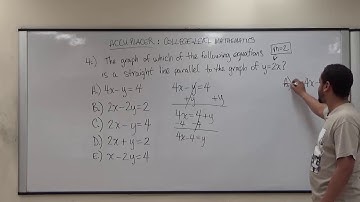 ACCUPLACER: COLLEGE LEVEL MATHEMATICS
4.) The graph of which of the following equations
is a straight line parallel to the graph of y=2x?
m=2
A) 4x-y=4
B) 2x-2y=2
C) 2x-y=4
D) 2x+y=2
E) x-2y=4
4x-y=4
+y +y
4x=4+y
-4 -4
4x-4=y
A)